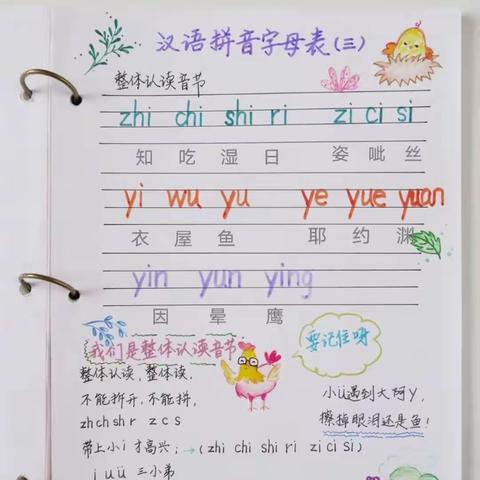 汉语拼音字母表(三)
整体认读音节
zhi chi shi ri zi ci si
知 吃 湿 日 姿 呲 丝
yi wu yu ye yue yuan
衣 屋 鱼 耶 约 渊
yin yun ying
因 晕 鹰
我们是整体认读音节
要记住呀
整体认读,整体读,
不能拆开,不能拼,
zh ch sh r z c s
带上小i才高兴;→(zhi chi shi ri zi ci si)
i u ü 三小弟
小ü遇到大阿Y,
擦掉眼泪还是鱼!